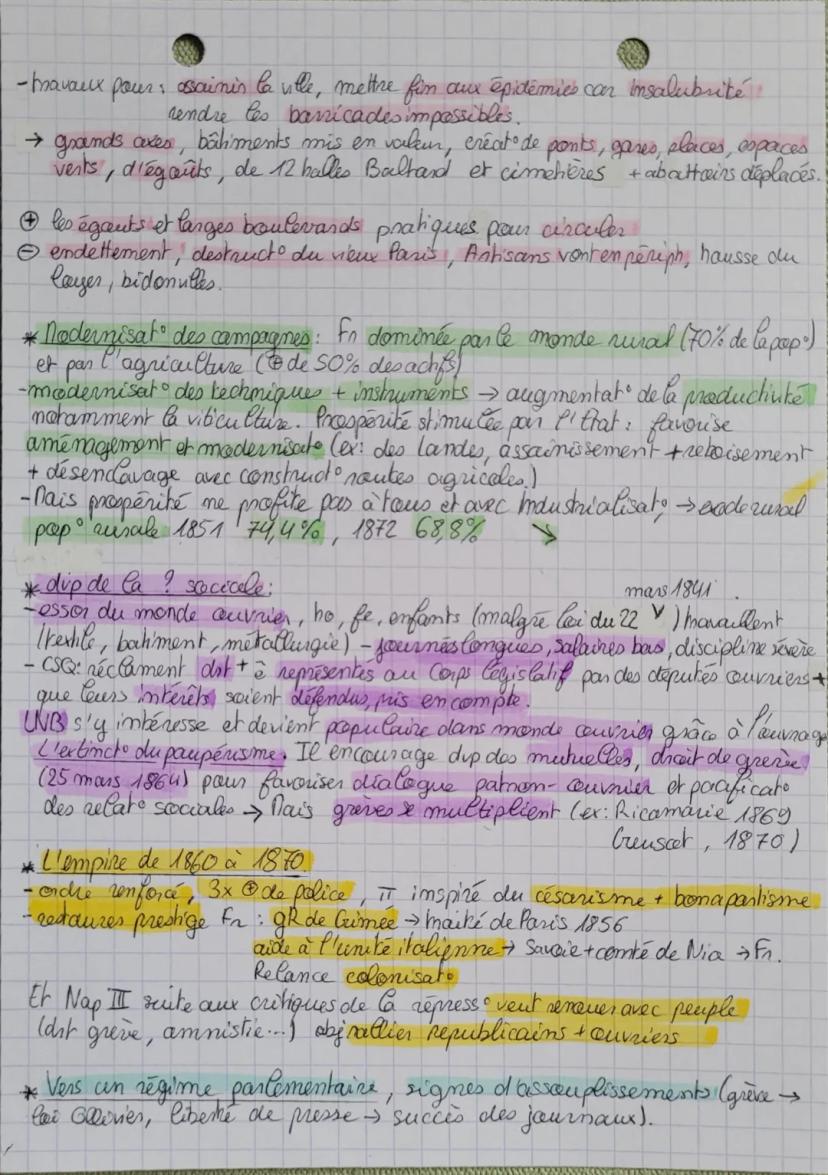 - travaux pour : assainir la ville, mettre fin aux épidémies car insalubrité
rendre les barricades impossibles.
→ grands axes, bâtiments mis en valeur, créat° de ponts, gares, places, espaces
verts, d'égoûts, de 12 halles Baltard et cimetières + abattoirs déplacés.
⊕ les égouts et larges boulevards pratiques pour circuler
⊖ endettement, destruct° du vieux Paris, Artisans vont en périph, hausse du
loyer, bidonvilles.
* Modernisat° des campagnes : Fr dominée par le monde rural (70% de la pop°)
et par l'agriculture (⊕ de 50% des actifs)
- modernisat° des techniques + instruments → augmentat° de la productivité
notamment la viticulture. Prospérité stimulée par l'État : favorise
aménagement et modernisat° (ex : des landes, assainissement + reboisement
+ désenclavage avec construct° routes agricoles.)
- Mais prospérité ne profite pas à tous et avec industrialisat°, → exode rural
pop° rurale 1851 74,4%, 1872 68,8% ↘
* dvp de la ? sociale :
- essor du monde ouvrier, ho, fe, enfants (malgré loi du 22 mars 1841) travaillent
(textile, batiment, métallurgie) - journées longues, salaires bas, discipline sévère
- CSQ : réclament drt + ê représentés au Corps législatif par des députés ouvriers +
que leurs intérêts soient défendus, pris en compte.
LNB s'y intéresse et devient populaire dans monde ouvrier grâce à l'ouvrage
L'extinct° du paupérisme. Il encourage dvp des mutuelles, droit de grève
(25 mars 1864) pour favoriser dialogue patron-ouvrier et pacificat°
des relat° sociales → Mais grèves se multiplient (ex : Ricamarie 1869
Creusot, 1870)
* L'empire de 1860 à 1870
- ordre renforcé, 3x ⊕ de police, π inspiré du césarisme + bonapartisme
- restaures prestige Fr : gR de Crimée → traité de Paris 1856
aide à l'unité italienne → Savoie + comté de Nia → Fr.
Relance colonisat°
Et Nap III suite aux critiques de la répress° veut renouer avec peuple
(drt grève, amnistie...) obj rallier républicains + ouvriers
* Vers un régime parlementaire, signes d'assouplissements (grève →
loi Ollivier, liberté de presse → succès des journaux).